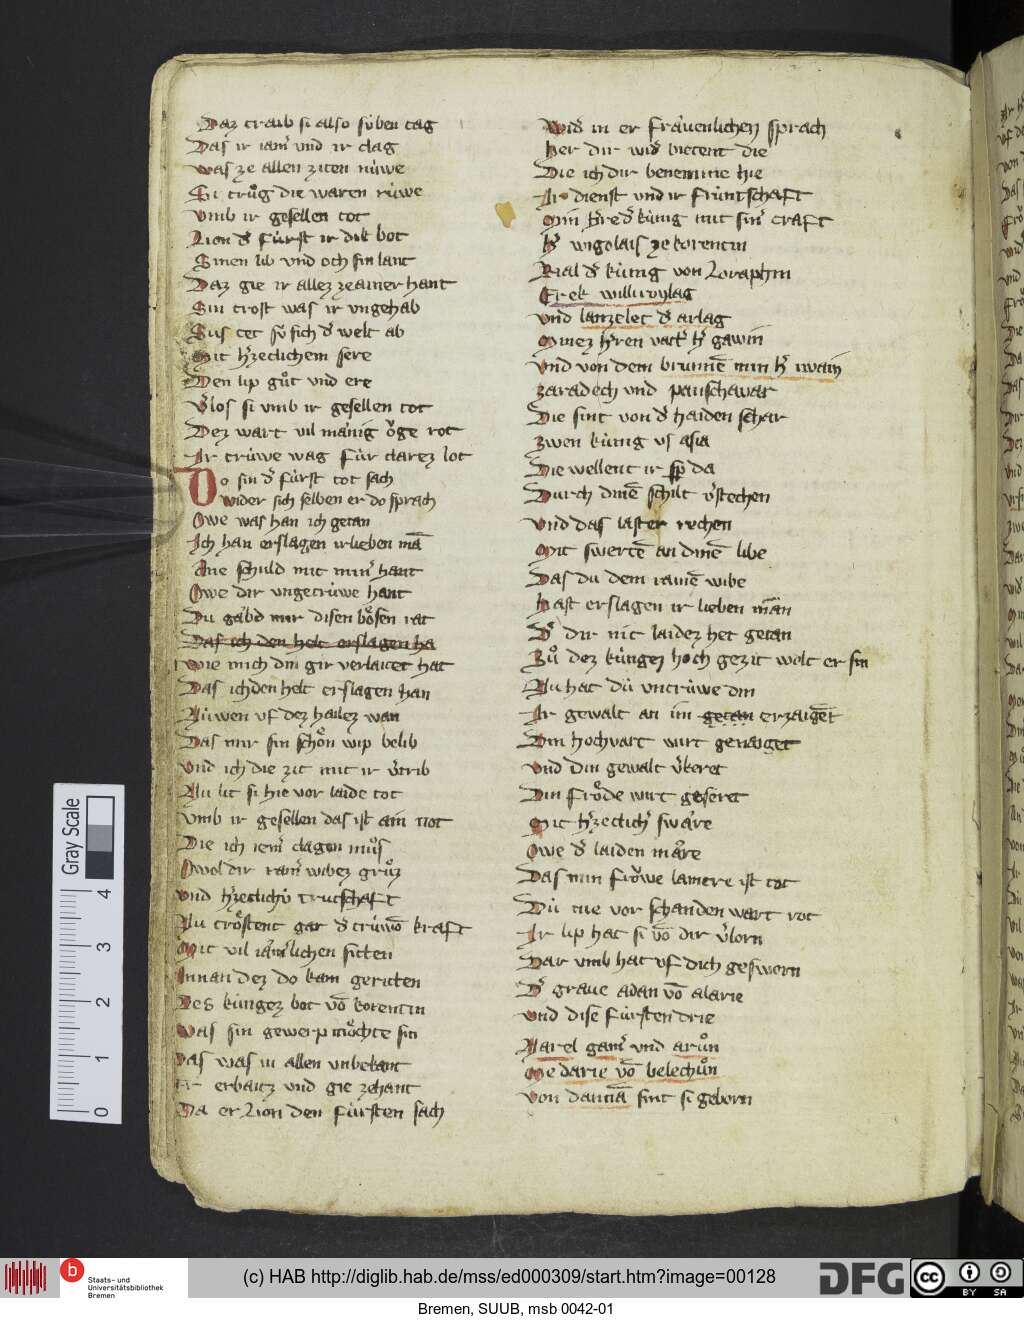 Daz traib si also süben tag
Das ir iam̾ vnd ir clag
was ze allen ziten nüwe
Si trůg die waren rüwe
vmb ir gesellen tot
Lion d̾ fürst ir dik bot
Sinen lib vnd och sin lant
Daz gie ir allez ze ainer hant
Sin trost was ir vngehab
Sus tet sü sich d̾ welt ab
Mit h̾zeclichem sere
Den lip gůt vnd ere
v̾los si vmb ir gesellen tot
Dez wart vil mänig öge rot
Ir trüwe wag für clarez lot
Do sin d̾ fürst tot sach
wider sich selben er do sprach
Owe was han ich getan
Ich han erslagen ir lieben mā
Ane schuld mit min̾ hant
Owe dir vngetrüwe hant
Du gabd mir disen bösen rat
Das ich den helt erslagen ha
wie mich din gir verlaitet hat
Das ich den helt erslagen han
Nüwen vf dez hailez wan
Das mir sin schön wip belib
vnd ich die zit mit ir v̾trib
Nu lit si hie vor laide tot
vmb ir gesellen das ist ain not
Die ich iem̾ clagen můs
Owol dir rain̾ wibez grůz
vnd h̾zeclichü trutschaft
Nu tröstent gar d̾ trüwō kraft
Mit vil iäm̾lichen sitten
Innan dez do kam geritten
Des küngez bot vō korentin
was sin gewerp möchte sin
Das was in allen vnbekant
Er erbaitz vnd gie zehant
Da er Lion den fürsten sach
wid̾ in er fräuenlichen sprach
her dir wid̾ bietent die
Die ich dir benemme hie
Ir dienst vnd ir früntschaft
Min h̾re d̾ küng mit sin̾ craft
h̾ wigolais ze korentin
Rial d̾ küng von Loraphin
Erek
vnd lanzelet d̾ arlag
Minez h̾ren vatt̾ h̾ gawin
vnd von dem brunnē min h̾ iwain
zaradech vnd panschavar
Die sint von d̾ haiden schar
zwen küng vs asia
Die wellent ir sp̄ da
Durch dinē schilt v̾stechen
vnd das laster rechen
Mit swertē an dinē libe
Das du dem rainē wibe
hast erslagen ir lieben män
D̾ dir nit laidez het getan
Zů dez küngez hoch gezit wolt er sin
Nu hat dü vntrüwe din
Ir gewalt an im getan erzaiget
Din hochvart wirt genaiget
vnd din gewalt v̾keret
Din fröde wirt geseret
Mit h̾zeclich̾ swäre
Owe d̾ laiden märe
Das min fröwe lamere ist tot
Dü nie vor schanden wart rot
Ir lip hat si vō dir v̾lorn
Dar vmb hat vf dich gesworn
D̾ graue adan vō alarie
vnd dise fürsten drie
Marel gam̾ vnd arůn
Medarie vō belechůn
von dannā sint si geborn
Gray Scale
0 1 2 3 4
b Staats- und
Universitätsbibliothek
Bremen
(c) HAB http://diglib.hab.de/mss/ed000309/start.htm?image=00128
DFG
cc BY SA
Bremen, SUUB, msb 0042-01